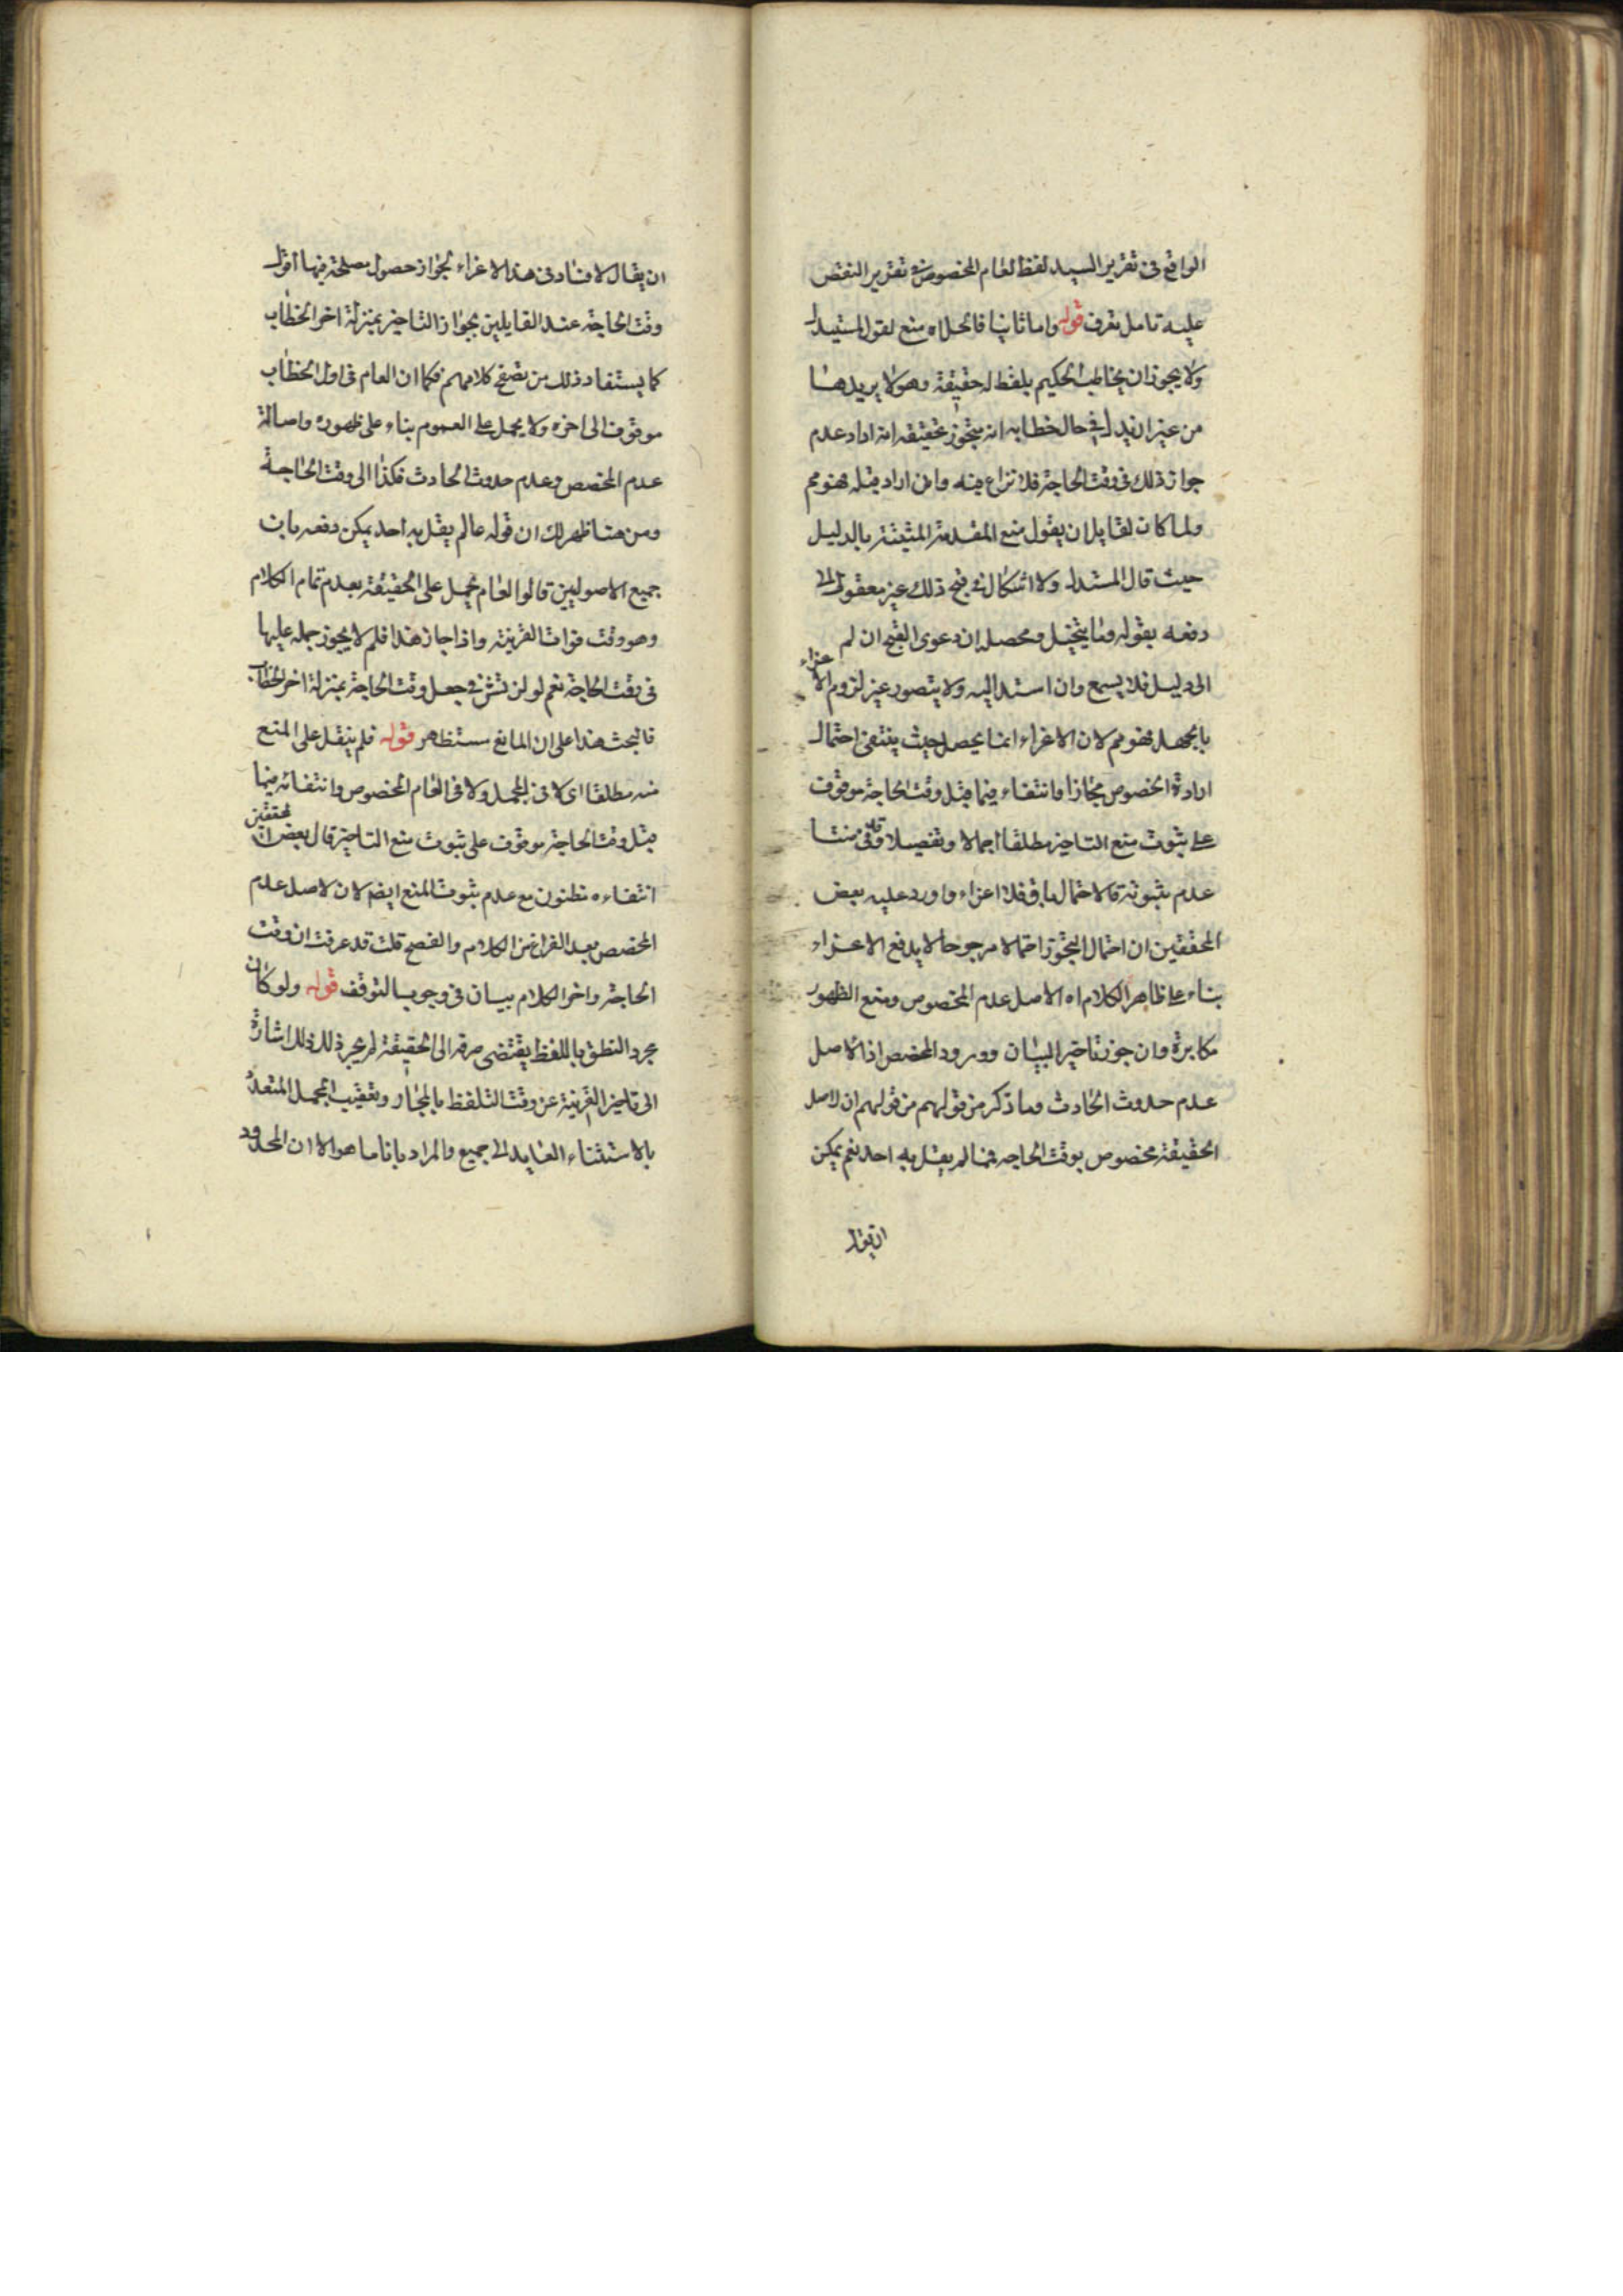 الواقع فى تقرير السيد لفظ العام المخصوص فى تقرير النقض
عليه تامل تعرف قوله واما ثانيا فالحل اه منع لقول المستدل
ولا يجوز ان يخاطب الحكيم بلفظ له حقيقة وهو لا يريدها
من غير ان يدل فى حال خطابه انه متجوز تحقيقه انه اراد عدم
جواز ذلك فى وقت الحاجة فلا نزاع فيه وان اراد قبله فهو مم
ولما كان لقايل ان يقول منع المقدمة المثبتة بالدليل
حيث قال المستدل ولا اشكال فى قبح ذلك غير معقول الى
دفعه بقوله وما يتخيل ومحصله ان دعوى القبح ان لم
الى دليل فلا يسمع وان استند اليه ولا يتصور غير لزوم الاغراء
بالجهل فهو مم لان الاغراء انما يحصل حيث ينتفى احتمال
ارادة الخصوص مجازا وانتفاء فيما قبل وقت الحاجة موقوف
على ثبوت منع التاخير مطلقا اجمالا وتفصيلا وقد فرضنا
عدم ثبوته فالاحتمال باق فلا اغراء واورد عليه بعض
المحققين ان احتمال التجوز احتمالا مرجوحا لا يدفع الاغراء
بناء على ظاهر الكلام اه الاصل عدم المخصوص ومنع الظهور
مكابرة وان جوز تاخير البيان وورود المخصص اذ الاصل
عدم حدوث الحادث وما ذكر من قولهم من قولهم ان الاصل
الحقيقة مخصوص بوقت الحاجه مما لم يقل به احد نعم يمكن
ان يقول
ان يقال لا فساد فى هذا الاغراء لجواز حصول مصلحة فيها اقول
وقت الحاجة عند القايلين بجواز التاخير بمنزلة اخر الخطاب
كما يستفاد ذلك من تصفح كلامهم فكما ان العام فى اول الخطاب
موقوف الى اخره ولا يحمل على العموم بناء على ظهوره واصالة
عدم المخصص وعدم حدوث الحادث فكذا الى وقت الحاجة
ومن هنا ظهر لك ان قوله عالم يقل به احد يمكن دفعه بان
جميع الاصوليين قالوا العام يحمل على الحقيقة بعدم تمام الكلام
وهو وقت فوات القرينة واذا جاز هذا فلم لا يجوز حمله عليها
فى وقت الحاجة نعم لو لن تش فى جعل وقت الحاجة بمنزلة اخر الخطاب
فالبحث هذا على ان المانع مستظهر قوله فلم ينقل على المنع
منه مطلقا اى لا فى المجمل ولا فى العام المخصوص وانتفائه فيما
قبل وقت الحاجة موقوف على ثبوت منع التاخير قال بعض المحققين
انتفاءه مظنون مع عدم ثبوت المنع ايضا لان الاصل عدم
المخصص بعد الفراغ من الكلام والفصح قلت قد عرفت ان وقت
الحاجة واخر الكلام بيان فى وجوب التوقف قوله ولو كان
مجرد النطق باللفظ يقتضى صرفه الى الحقيقة لم يجز ذلك ذلك اشارة
الى تاخير القرينة عن وقت التلفظ بالمجاز وتعقيب الجمل المتعدد
بالاستثناء العايد الى جميع والمراد بانا ما هو الا ان المحدود